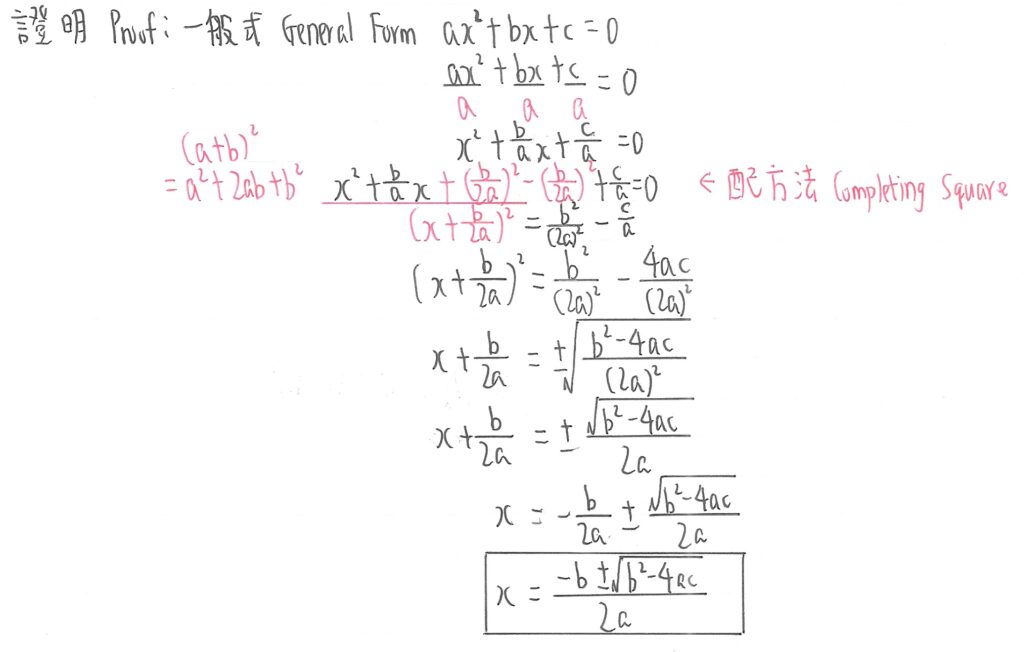 證明 Proof: 一般式 General Form ax² + bx + c = 0
ax²/a + bx/a + c/a = 0
x² + b/a x + c/a = 0
(a+b)²
= a² + 2ab + b²
x² + b/a x + (b/2a)² - (b/2a)² + c/a = 0 ← 配方法 Completing Square
(x + b/2a)² = b²/(2a)² - c/a
(x + b/2a)² = b²/(2a)² - 4ac/(2a)²
x + b/2a = ±√((b²-4ac)/(2a)²)
x + b/2a = ± √(b²-4ac)/2a
x = - b/2a ± √(b²-4ac)/2a
x = (-b ± √(b²-4ac))/2a